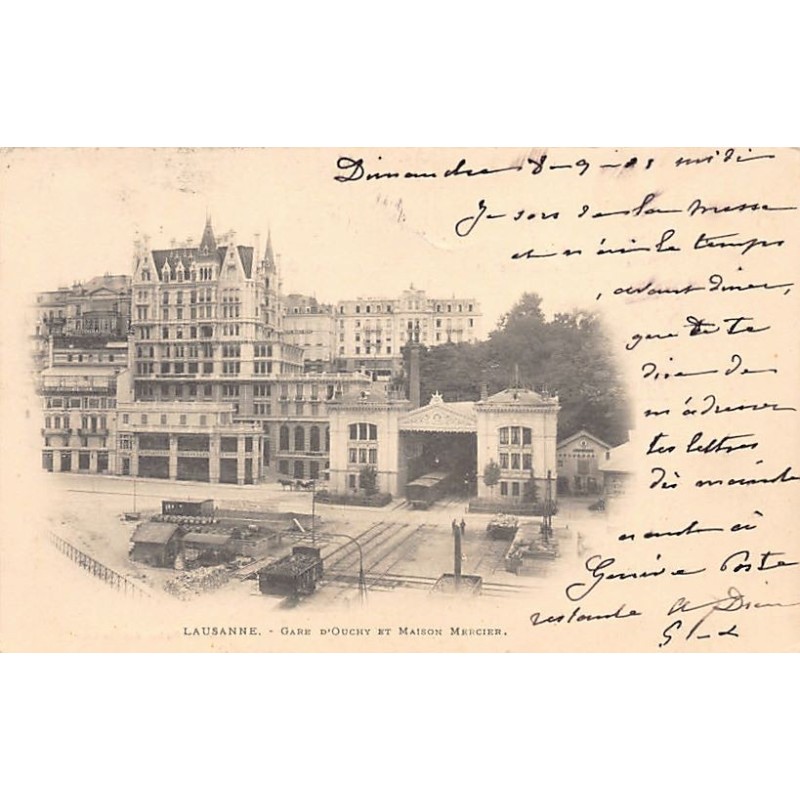 Dimanche 8-9-01 midi
Je sors de la messe
et n'ai le temps
avant diner,
que de te
dire de
m'adresser
tes lettres
dès maintenant à
Genève Poste
restante A Dieu
LAUSANNE. - GARE D'OUCHY ET MAISON MERCIER.